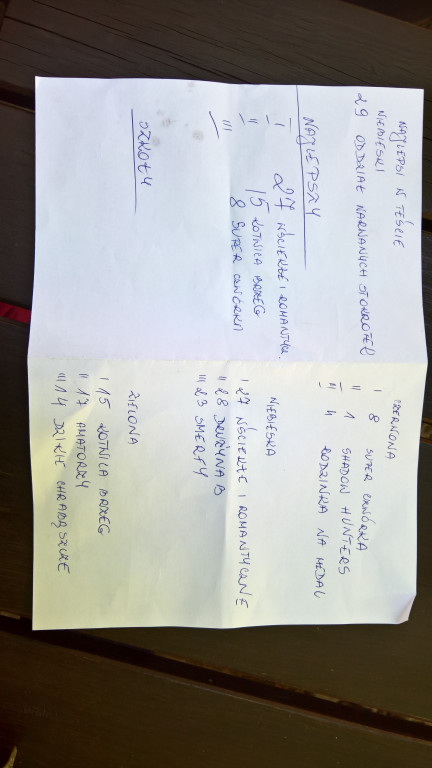 NAJLEPSI W TEŚCIE
NIEBIESKI
29 ODDZIAŁ NARWANYCH STOKROTEK
NAJLEPSZY
I 27 WŚCIEKŁE I ROMANTYCZ.
II 15 ŁOTNICA BRZEG
III 8 SUPER CWÓRKA
OZZOTY
CZERWONA
I 8 SUPER CWÓRKA
II 1 SHADOW HUNTERS
III 4 RODZINKA NA MEDAL
NIEBIESKA
I 27 WŚCIEKŁE I ROMANTYCZNE
II 28 DRUŻYNA B
III 23 SMERFY
ZIELONA
I 15 ŁOTNICA BRZEG
II 17 AMATORZY
III 14 DZIKIE CHRABĄSZCZE